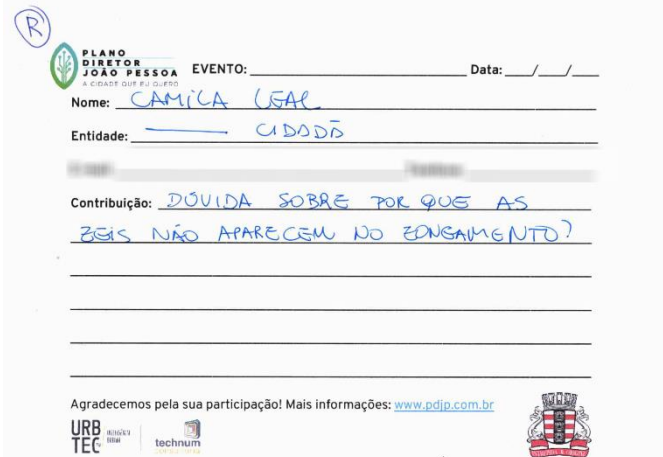 R
PLANO
DIRETOR
JOÃO PESSOA
A CIDADE QUE EU QUERO
EVENTO: Data: __/__/__
Nome: CAMILA LEAL
Entidade: CIDADÃ
Contribuição: DÚVIDA SOBRE POR QUE AS
ZEIS NÃO APARECEM NO ZONEAMENTO?
Agradecemos pela sua participação! Mais informações: www.pdjp.com.br
URB
TEC
technum